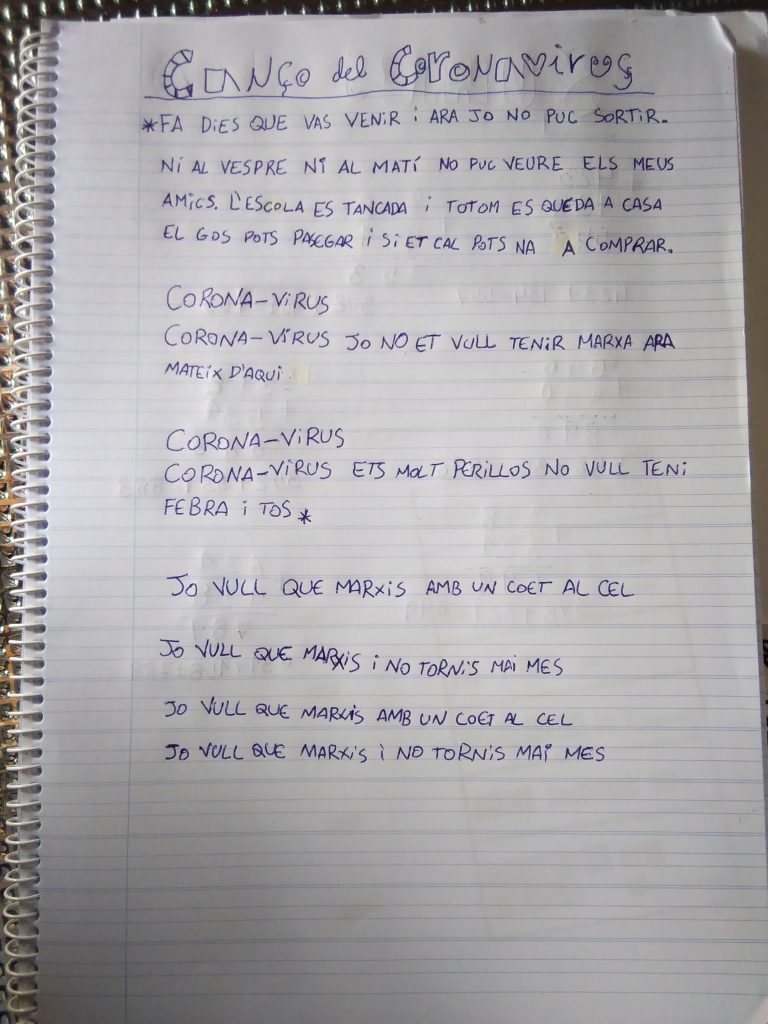 Canço del Coronavirus
*FA DIES QUE VAS VENIR i ARA JO NO PUC SORTIR.
NI AL VESPRE NI AL MATÍ NO PUC VEURE ELS MEUS
AMICS. L'ESCOLA ES TANCADA i TOTOM ES QUEDA A CASA
EL GOS POTS PASEGAR i SI ET CAL POTS NA A COMPRAR.
CORONA-VIRUS
CORONA-VÍRUS JO NO ET VULL TENIR MARXA ARA
MATEIX D'AQUI
CORONA-VIRUS
CORONA-VIRUS ETS MOLT PERILLOS NO VULL TENI
FEBRA i TOS *
JO VULL QUE MARXIS AMB UN COET AL CEL
JO VULL QUE MARXIS i NO TORNIS MAI MES
JO VULL QUE MARXIS AMB UN COET AL CEL
JO VULL QUE MARXIS i NO TORNIS MAI MES